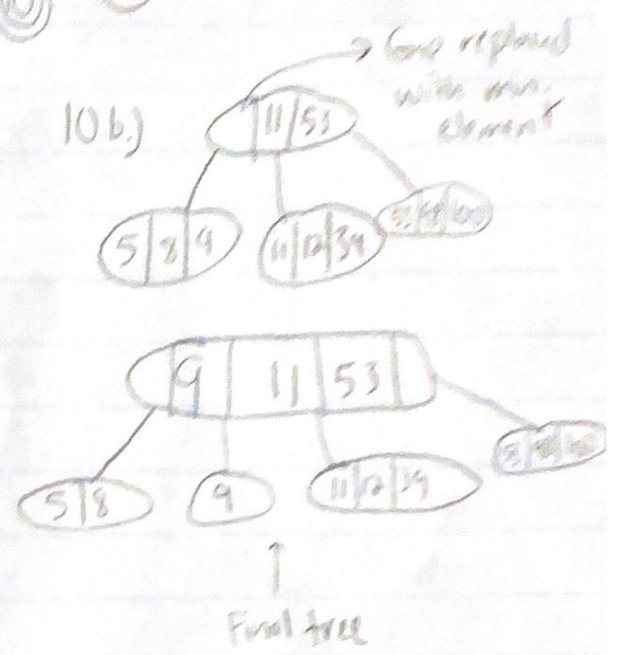 10b.)
replaced
with min.
element
11 | 53
5 | 8 | 9
11 | 12 | 34
9 | 11 | 53
5 | 8
9
11 | 12 | 34
Final tree